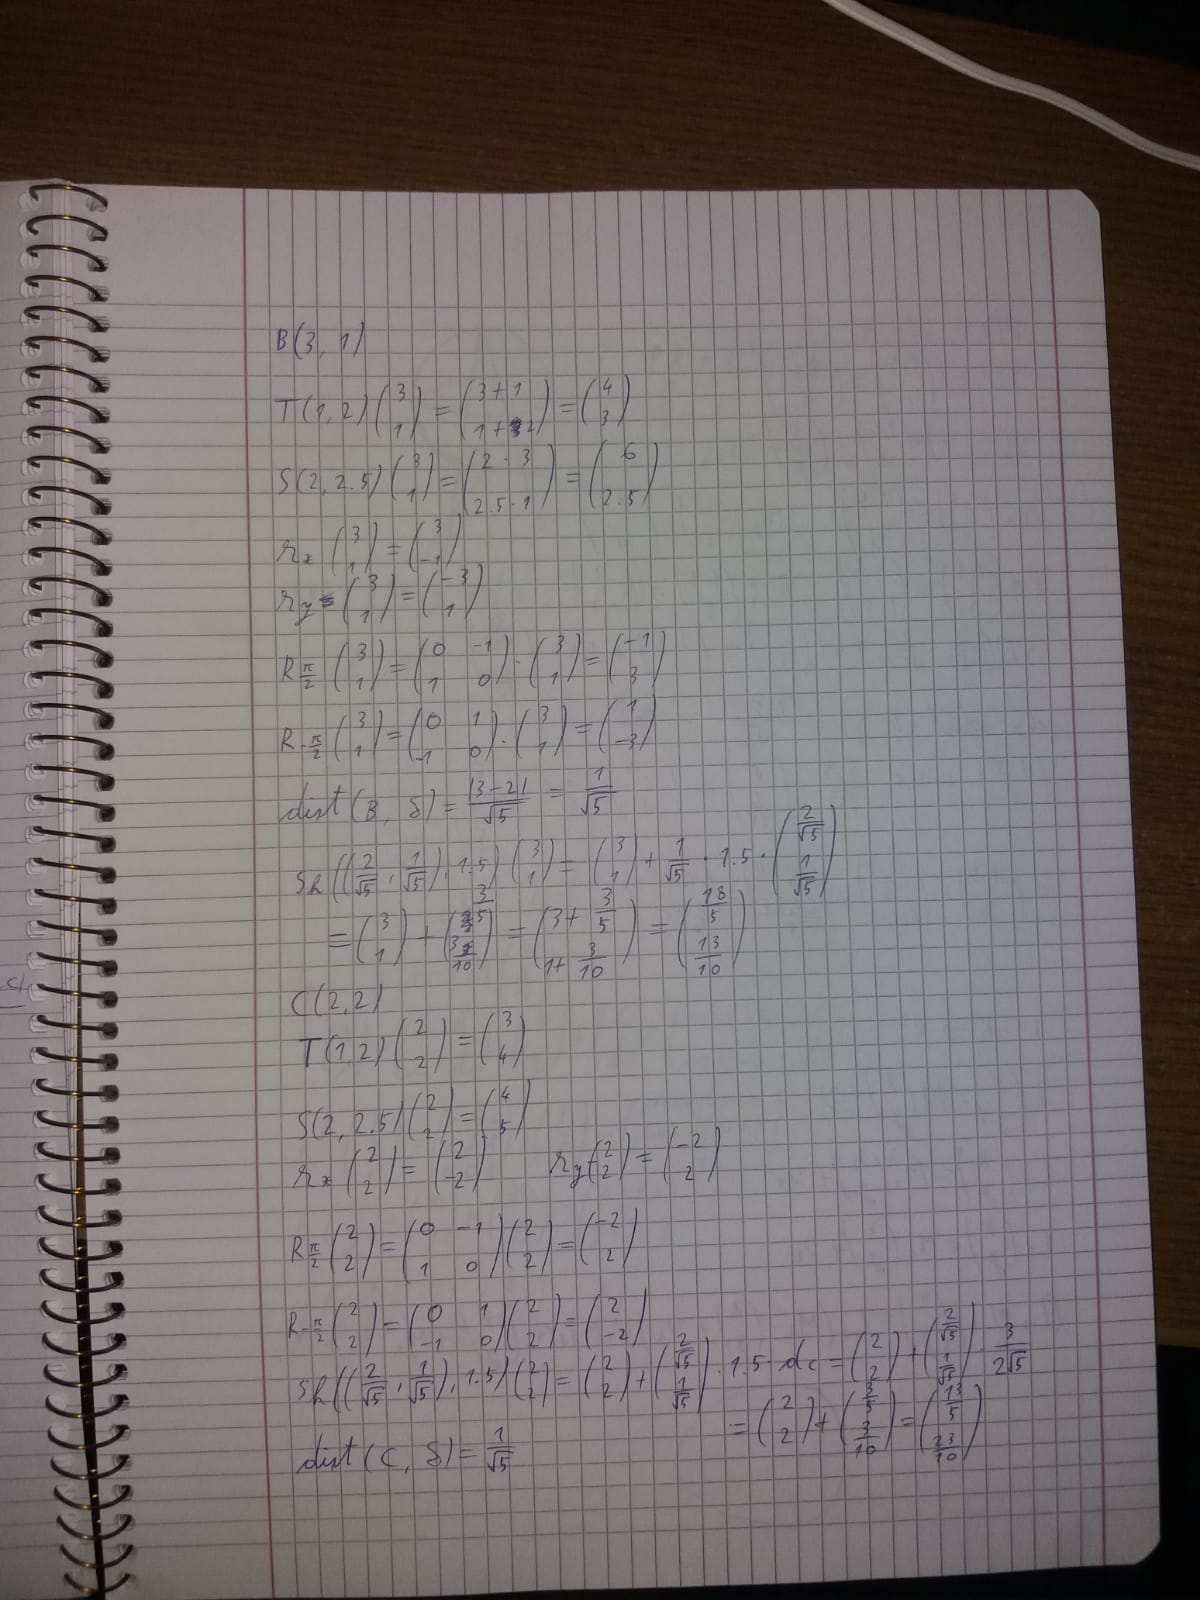 B(3, 1)
T(1,2) (3 1) = (3+1 1+2) = (4 3)
S(2, 2.5) (3 1) = (2·3 2.5·1) = (6 2.5)
rx (3 1) = (3 -1)
ry (3 1) = (-3 1)
R π/2 (3 1) = (0 -1 1 0) · (3 1) = (-1 3)
R -π/2 (3 1) = (0 1 -1 0) · (3 1) = (1 -3)
dist(B, δ) = |3-2|/√5 = 1/√5
Sh((2/√5, 1/√5), 1.5) (3 1) = (3 1) + 1/√5 · 1.5 · (2/√5 1/√5)
= (3 1) + (3/5 3/10) = (3+3/5 1+3/10) = (18/5 13/10)
C(2,2)
T(1,2) (2 2) = (3 4)
S(2, 2.5) (2 2) = (4 5)
rx (2 2) = (2 -2) ry (2 2) = (-2 2)
R π/2 (2 2) = (0 -1 1 0) (2 2) = (-2 2)
R -π/2 (2 2) = (0 1 -1 0) (2 2) = (2 -2)
Sh((2/√5, 1/√5), 1.5) (2 2) = (2 2) + (2/√5 1/√5) · 1.5 · dc = (2 2) + (2/√5 1/√5) · 3/2√5
= (2 2) + (3/5 3/10) = (13/5 23/10)
dist(C, δ) = 1/√5